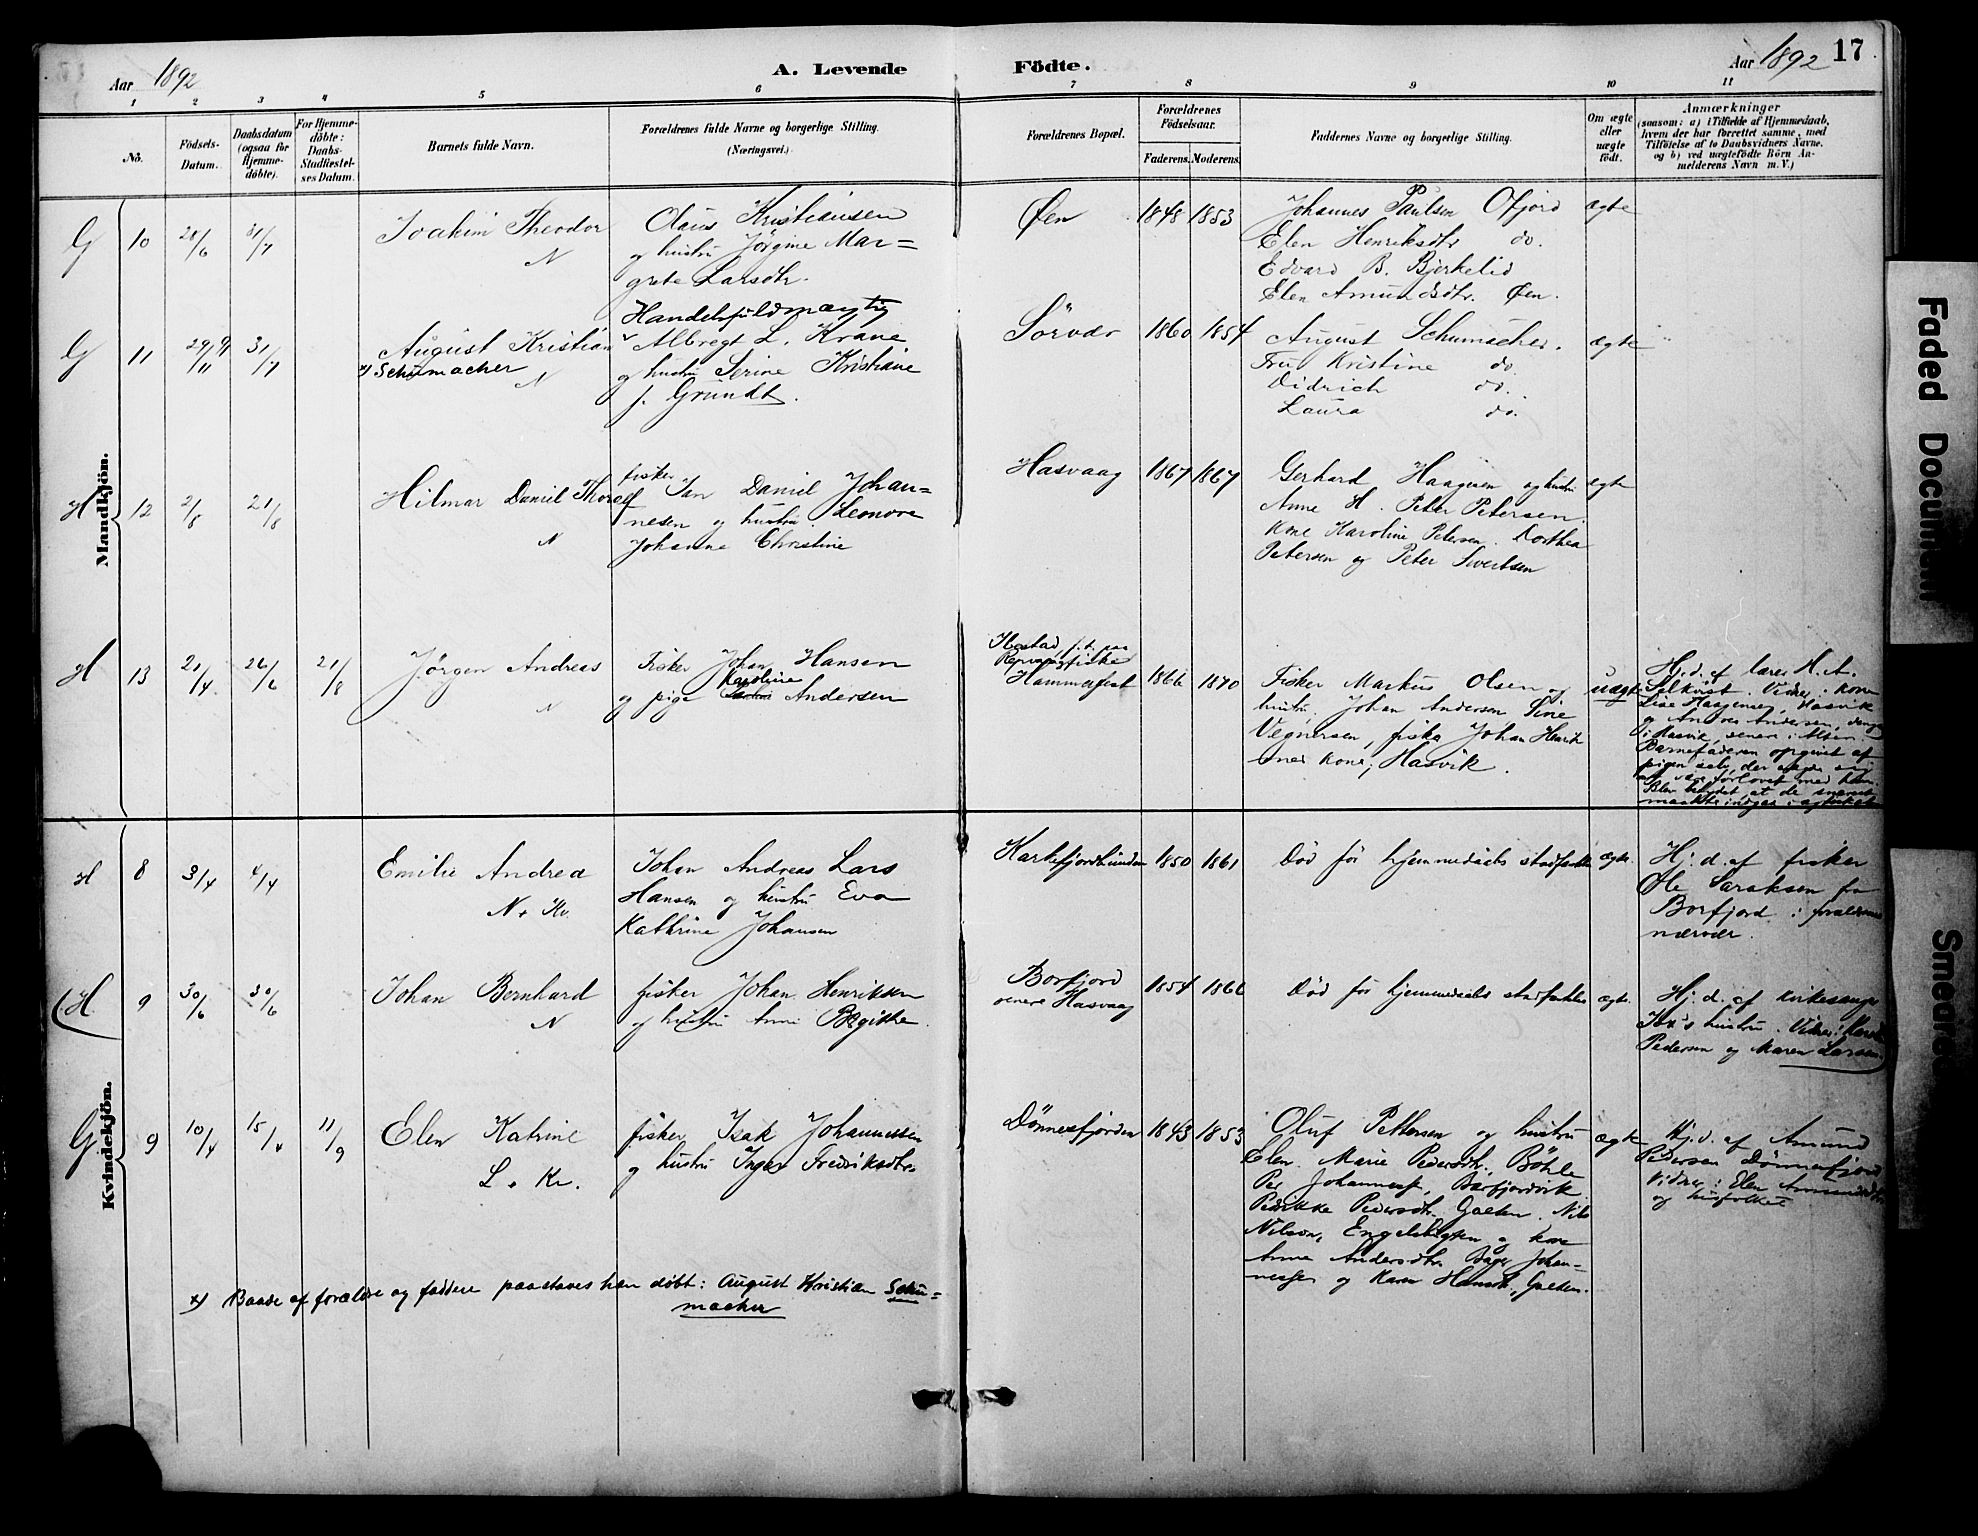 Aar 1892
A. Levende Födte.
Aar 1892
17
1 2 3 4 5 6 7 8 9 10 11
No.
Födsels-
Datum.
Daabsdatum
(ogsaa for
Hjemme-
döbte).
For Hjemme-
döbte:
Daabs-
Stadfæstel-
ses Datum.
Barnets fulde Navn.
Forældrenes fulde Navne og borgerlige Stilling.
(Næringsvei.)
Forældrenes Bopæl.
Forældrenes
Födselsaar.
Faderens.
Moderens.
Faddernes Navne og borgerlige Stilling.
Om ægte
eller
uægte
födt.
Anmærkninger
(saasom: a) i Tilfælde af Hjemmedaab,
hvem der har forrettet samme, med
Tilföielse af to Daabsvidners Navne,
og b) ved uægtefödte Börn An-
melderens Navn m. V.)
Mandkjön.
G 10 28/6 31/7
Joakim Theodor
N
Olaus Kristiansen
og hustru Jørgine Mar=
grete Larsdtr.
Øen
1848 1853
Johannes Paulsen Ofjord
Elen Henriksdtr do.
Edvard B. Bjerkelid
Elen Amundsdtr. Øen.
ægte
G 11 29/11 91 31/7
August Kristian
x) Schumacher
N
Handelsfuldmægtig
Albregt L. Krane
og hustru Serine Kristiane
f. Grundt.
Sörvær
1860 1854
August Schumacher.
Fru Kristine do.
Didrich do.
Laura do.
ægte
H 12 2/8 21/8
Hilmar Daniel Thoralf
N
fisker
Jan Daniel Johan=
nesen og hustru Leonore
Johanne Christine
Hasvaag
1867 1867
Gerhard Haagensen og hustru
Anne H. Peter Petersen.
Kone Karoline Petersen. Dorthea
Petersen og Peter Sivertsen
ægte
H 13 21/4 26/6 21/8
Jørgen Andreas
N
Fisker Johan Hansen
Karoline
og pige Andersen
f. t. paa
Hammerfest
1866 1870
Fisker Markus Olsen og
hustru, Johan Andersen Sine
Vegnersen, fisker Johan Henrik
med kone, Hasvik.
uægte
Hj.d. af lærer H. A.
Selkvist. Vidner: kone
Lise Haagensen, Hasvik
og Andreas Andersen,
i Hasvik, senere i Alten.
Barnefaderen opgivet af
pigen selv, der sagde sig
at være forlovet med ham.
Blev betydet, at de snarest
Kvindekjön.
H 8 3/4 4/4
Emilie Andrea
N. Kv.
Johan Andreas Lars
Hansen og hustru Eva
Kathrine Johansen
1850 1861
Død før hjemmedaabs stadfæstelse
ægte.
Hj. d. af fisker
Ole Saraksen fra
Borfjord i forældrenes
nærvær.
(H. 9 30/6 30/6
Johan Bernhard
N
fisker Johan Henriksen
og hustru Anne Birgithe.
Borfjord
senere Hasvaag
1854 1866
Død før hjemmedaabs stadfæstelse
ægte.
Hj. d. af kirkesanger
hustru. Vidner:
Pedersen og Maren Larsen)
G. 9 10/4 15/4 11/9
Elen Katrine
L. Kv.
fisker Isak Johannessen
og hustru Inger Fredriksdtr.
Dönnesfjorden
1843 1853
Oluf Pettersen og hustru
Elen Marie Pedersdtr. Böhle
Per Johanness., Barfjordvik
Pedrikke Pedersdtr. Galten. Nils
Nilsen, Engelsbugten og kone
Anna Andersdtr. Johan=
nessen og Karen Hansdtr., Galten.
ægte
Hj. d. af Amund
Pedersen Dönnesfjord
Vidner: Elen Amundsdtr
og husfolket
x) Baade af forældre og faddere paastaaes han døbt: August Kristian Schu=
macher
Faded Document
Smeared